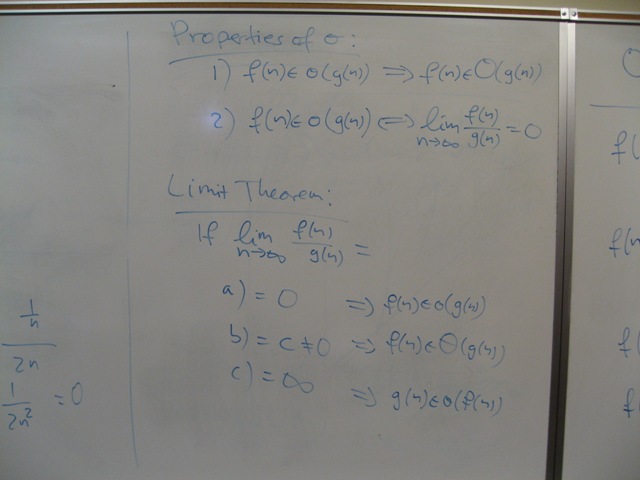 Properties of o:
1) f(n) ∈ o(g(n)) ⟹ f(n) ∈ O(g(n))
2) f(n) ∈ o(g(n)) ⟺ lim n→∞ f(n)/g(n) = 0
Limit Theorem:
If lim n→∞ f(n)/g(n) =
a) = 0 ⟹ f(n) ∈ o(g(n))
b) = c ≠ 0 ⟹ f(n) ∈ Θ(g(n))
c) = ∞ ⟹ g(n) ∈ o(f(n))
1/n
2n
1/2n² = 0
f(
f(n
f(
f(